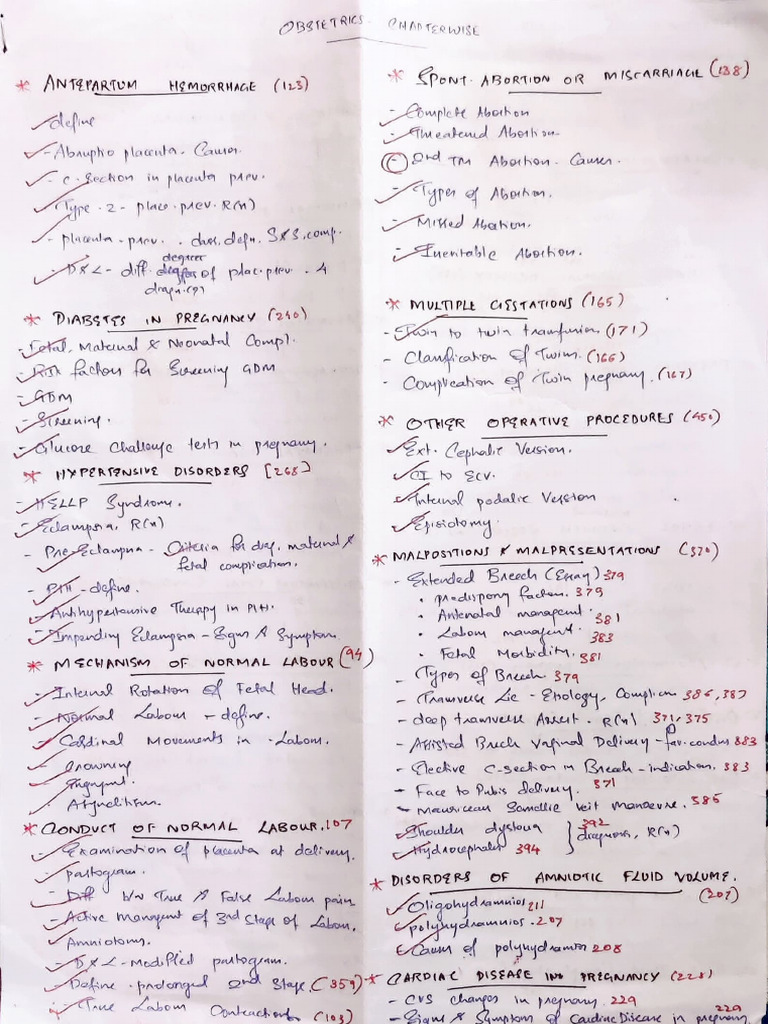 OBSTETRICS - CHAPTERWISE
* ANTEPARTUM HEMORRHAGE (123)
define
- Abruptio placenta. Causes.
- C-Section in placenta prev.
Type-2-plac.prev. R(x)
- placenta-prev. . class, defn. S&S, comp.
- D&L- diff. degrees of plac.prev. - 4
diagn.(2)
* DIABETES IN PREGNANCY (240)
- Fetal, Maternal & Neonatal Compl.
- Risk factors for Screening GDM
- GDM
- Screening.
- Glucose Challenge tests in pregnancy.
* HYPERTENSIVE DISORDERS [268]
- HELLP Syndrome.
- Eclampsia, R(x)
- Pre-Eclampsia - Criteria for diag, maternal &
fetal complication.
- PIH - define.
- Antihypertensive Therapy in PIH.
- Impending Eclampsia - Signs & Symptom
* MECHANISM OF NORMAL LABOUR (94)
- Internal Rotation of Fetal Head.
- Normal Labour - define.
- Cardinal Movements in Labour.
- Crowning
- Engagmnt.
- Asynclitism.
* CONDUCT OF NORMAL LABOUR. 107
- Examination of placenta at delivery.
- Partogram.
- Diff b/w True & False Labour pain
- Active Managment of 3rd Stage of Labour.
- Amniotomy.
- D&L - Modified partogram.
- Define - prolonged 2nd Stage. (359)
- True Labour Contractions (103)
* SPONT. ABORTION OR MISCARRIAGE (138)
- Complete Abortion
- Threatened Abortion.
- 2nd TM Abortion. Causes.
- Types of Abortion.
- Missed Abortion.
- Inevitable Abortion.
* MULTIPLE GESTATIONS (165)
- Twin to twin transfusion. (171)
- Classification of Twins. (166)
- Complication of Twin pregnancy. (167)
* OTHER OPERATIVE PROCEDURES (450)
- Ext. Cephalic Version.
- CI to ECV.
- Internal podalic Version
- Episiotomy.
* MALPOSITIONS & MALPRESENTATIONS (370)
- Extended Breech (Essay) 379
• predisposing factors. 379
• Antenatal managemnt. 381
• Labour managemnt. 383
• Fetal Morbidity. 381
- Types of Breech. 379
- Transverse Lie - Etiology, Complicns 386, 387
- deep transverse Arrest. R(x) 371, 375
- Assisted Breech Vaginal Delivery - fav. condns 383
- Elective C-section in Breech - indication. 383
- Face to Pubis delivery. 371
- Mauriceau Smellie Veit Manoeuvre. 385
- Shoulder dystocia 392 } diagnosis, R(x)
- Hydrocephalus 394
* DISORDERS OF AMNIOTIC FLUID VOLUME.
(207)
- Oligohydramnios 211
- polyhydramnios. 207
- Causes of polyhydramnios 208
* CARDIAC DISEASE IN PREGNANCY (228)
- CVS changes in pregnancy. 229
- Signs & Symptom of Cardiac Disease in pregnancy 229